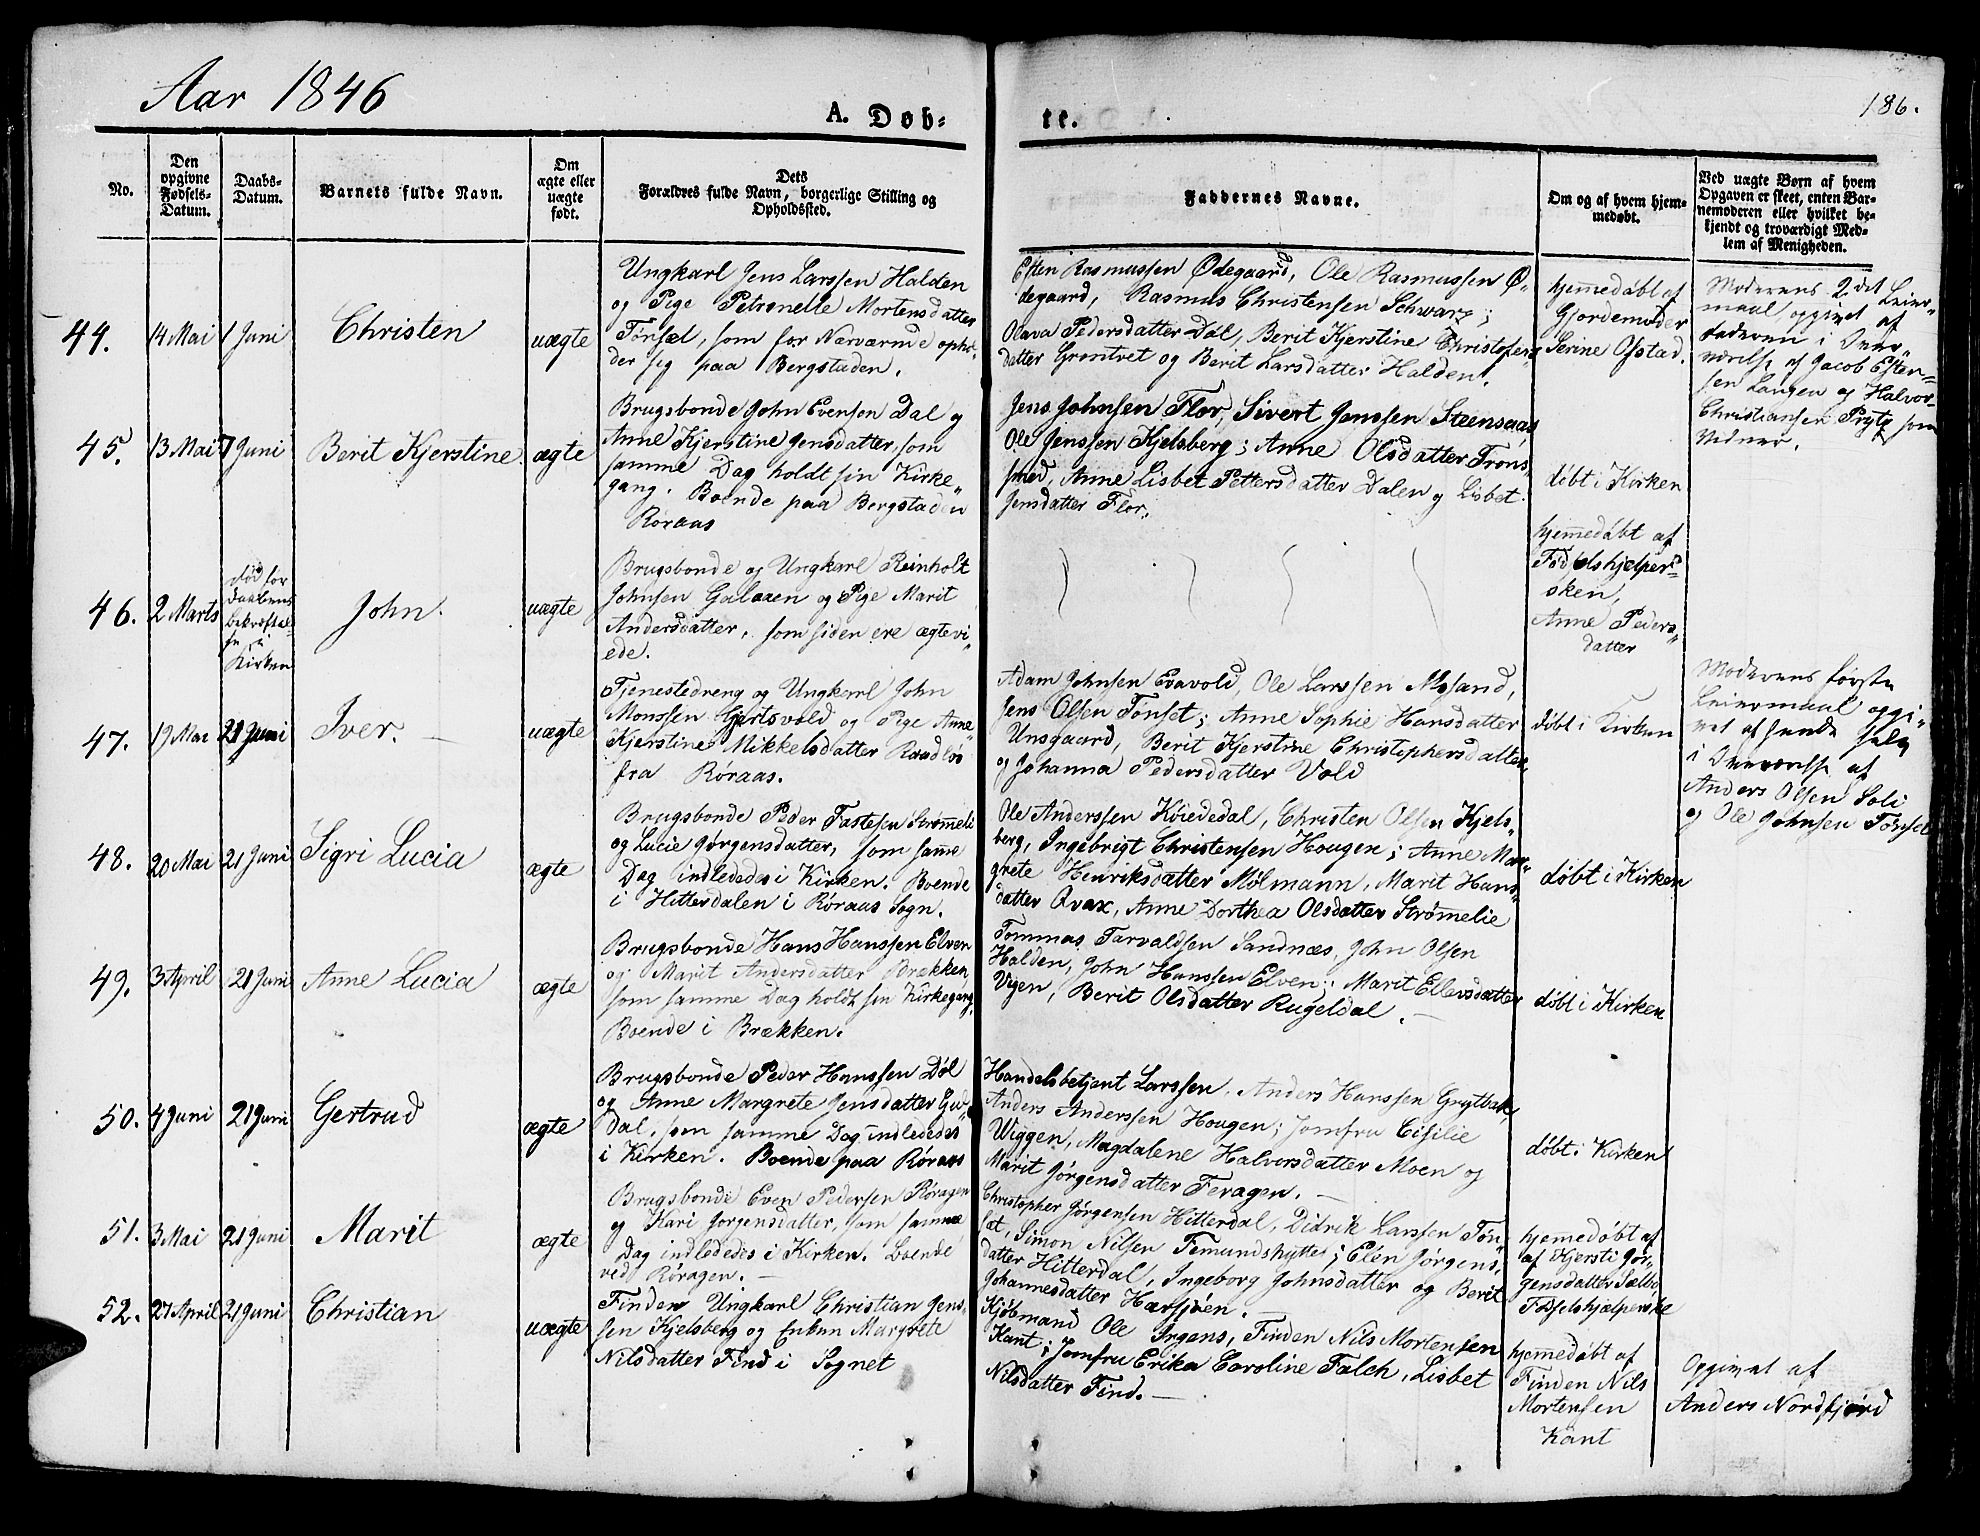 Aar 1846
186.
A. Døb-
te.
No.
Den
opgivne
Fødsels-
Datum.
Daabs-
Datum.
Barnets fulde Navn.
Om
ægte eller
uægte
født.
Dets
Forældres fulde Navn, borgerlige Stilling og
Opholdssted.
Faddernes Navne.
Om og af hvem hjem-
medøbt.
Ved uægte Børn af hvem
Opgaven er skeet, enten Bar-
nemoderen eller hvilket be-
kjendt og troværdigt Med-
lem af Menigheden.
44.
14 Mai
1 Juni
Christen
uægte
Ungkarl Jens Larssen Halden
og Pige Petronelle Mortensdatter
Tønset, som for Nærværende ophol-
der sig paa Bergstaden.
Esten Rasmussen Ødegaard, Ole Rasmussen Ø-
degaard, Rasmus Christensen Schwarz;
Olava Pedersdatter Dal, Berit Kjerstine Christofers
datter Grøntvet og Berit Larsdatter Halden.
hjemmedøbt af
Gjordemoder
Serine Ofstad.
Moderens 2det Leier-
maal, opgivet af
Faderen i Over-
værelse af Jacob Esten-
sen Langen og Halvor
Christiansen Prytz som
Vidner.
45.
13 Mai
7 Juni
Berit Kjerstine
ægte
Brugsbonde John Evensen Dal og
Anne Kjerstine Jensdatter, som
samme Dag holdt sin Kirke-
gang. Boende paa Bergstaden
Røraas
Jens Johnsen Flor, Sivert Jenssen Steensaas
Ole Jenssen Kjelsberg; Anne Olsdatter Trøns-
med, Anne Lisbet Pettersdatter Dalen og Lisbet
Jensdatter Flor.
døbt i Kirken
46.
2 Marts
død før
Daabens
bekræftel-
se i
Kirken
John.
uægte
Brugsbonde og Ungkarl Reinholt
Johnsen Galaaen og Pige Marit
Andersdatter, som siden ere ægtevi-
ede.
hjemmedøbt af
Fødselshjelper-
sken,
Anne Peders-
datter
47.
19 Mai
21 Juni
Iver.
uægte
Tjenestedreng og Ungkarl John
Monssen Gjertsvold og Pige Anne
Kjerstine Mikkelsdatter Raadløs
fra Røraas.
Adam Johnsen Evavold, Ole Larssen Mosand,
Jens Olsen Tønset; Anne Sophie Hansdatter
Unsgaard, Berit Kjerstine Christophersdatter
og Johanna Pedersdatter Vold
døbt i Kirken
Moderens første
Leiermaal opgi-
vet af hende selv
i Overværelse af
Anders Olsen Soli
og Ole Johnsen Tønset
48.
20 Mai
21 Juni
Sigri Lucia
ægte
Brugsbonde Peder Fastesen Strømeli
og Lucie Jørgensdatter, som samme
Dag indlededes i Kirken. Boende
i Hitterdalen i Røraas Sogn.
Ole Anderssen Køiedal, Christen Olsen Kjels-
berg, Ingebrigt Christensen Hougen; Anne Mar-
grete Henriksdatter Mølmann, Marit Hans-
datter Qvax, Anne Dorthea Olsdatter Strømelie
døbt i Kirken
49.
3 April
21 Juni
Anne Lucia
ægte
Brugsbonde Hans Hanssen Elven
og Marit Andersdatter Brækken
som samme Dag holdt sin Kirkegang.
Boende i Brækken.
Tommas Tarvaldsen Sandnæs, John Olsen
Halden, John Hanssen Elven; Marit Ellevsdatter
Vigen, Berit Olsdatter Rugeldal. —
døbt i Kirken
50.
4 Juni
21 Juni
Gertrud
ægte
Brugsbonde Peder Hanssen Døl
og Anne Margrete Jensdatter Gul-
dal, som samme Dag indlededes
i Kirken. Boende paa Røraas
Handelsbetjent Larssen, Anders Hanssen Grytbak,
Anders Anderssen Hougen; Jomfru Cisilie
Wiggen, Magdalene Halvorsdatter Moen og
Marit Jørgensdatter Feragen. —
døbt i Kirken
51.
3 Mai
21 Juni
Marit
ægte
Brugsbonde Even Pedersen Røragen
og Kari Jørgensdatter, som samme
Dag indlededes i Kirken. Boende
ved Røragen. —
Christopher Jørgensen Hitterdal, Didrik Larssen Tøn-
set, Simon Nilsen Femundshytte; Elen Jørgens-
datter Hitterdal, Ingeborg Johnsdatter og Berit
Johannesdatter Harsjøen. —
hjemedøbt af
af Kjersti Jør-
gensdatter Sælbo
Fødselshjælperske
52.
27 April
21 Juni
Christian
uægte
Finden Ungkarl Christian Jens-
sen Kjelsberg og Enkun Margrete
Nilsdatter Find i Sognet
Kjøbmand Ole Irgens, Finden Nils Mortensen
Kant; Jomfru Erika Caroline Falch, Lisbet
Nilsdatter Find. —
hjemmedøbt af
Finden Nils
Mortensen
Kant
Opgivet af
Anders Nordfjord